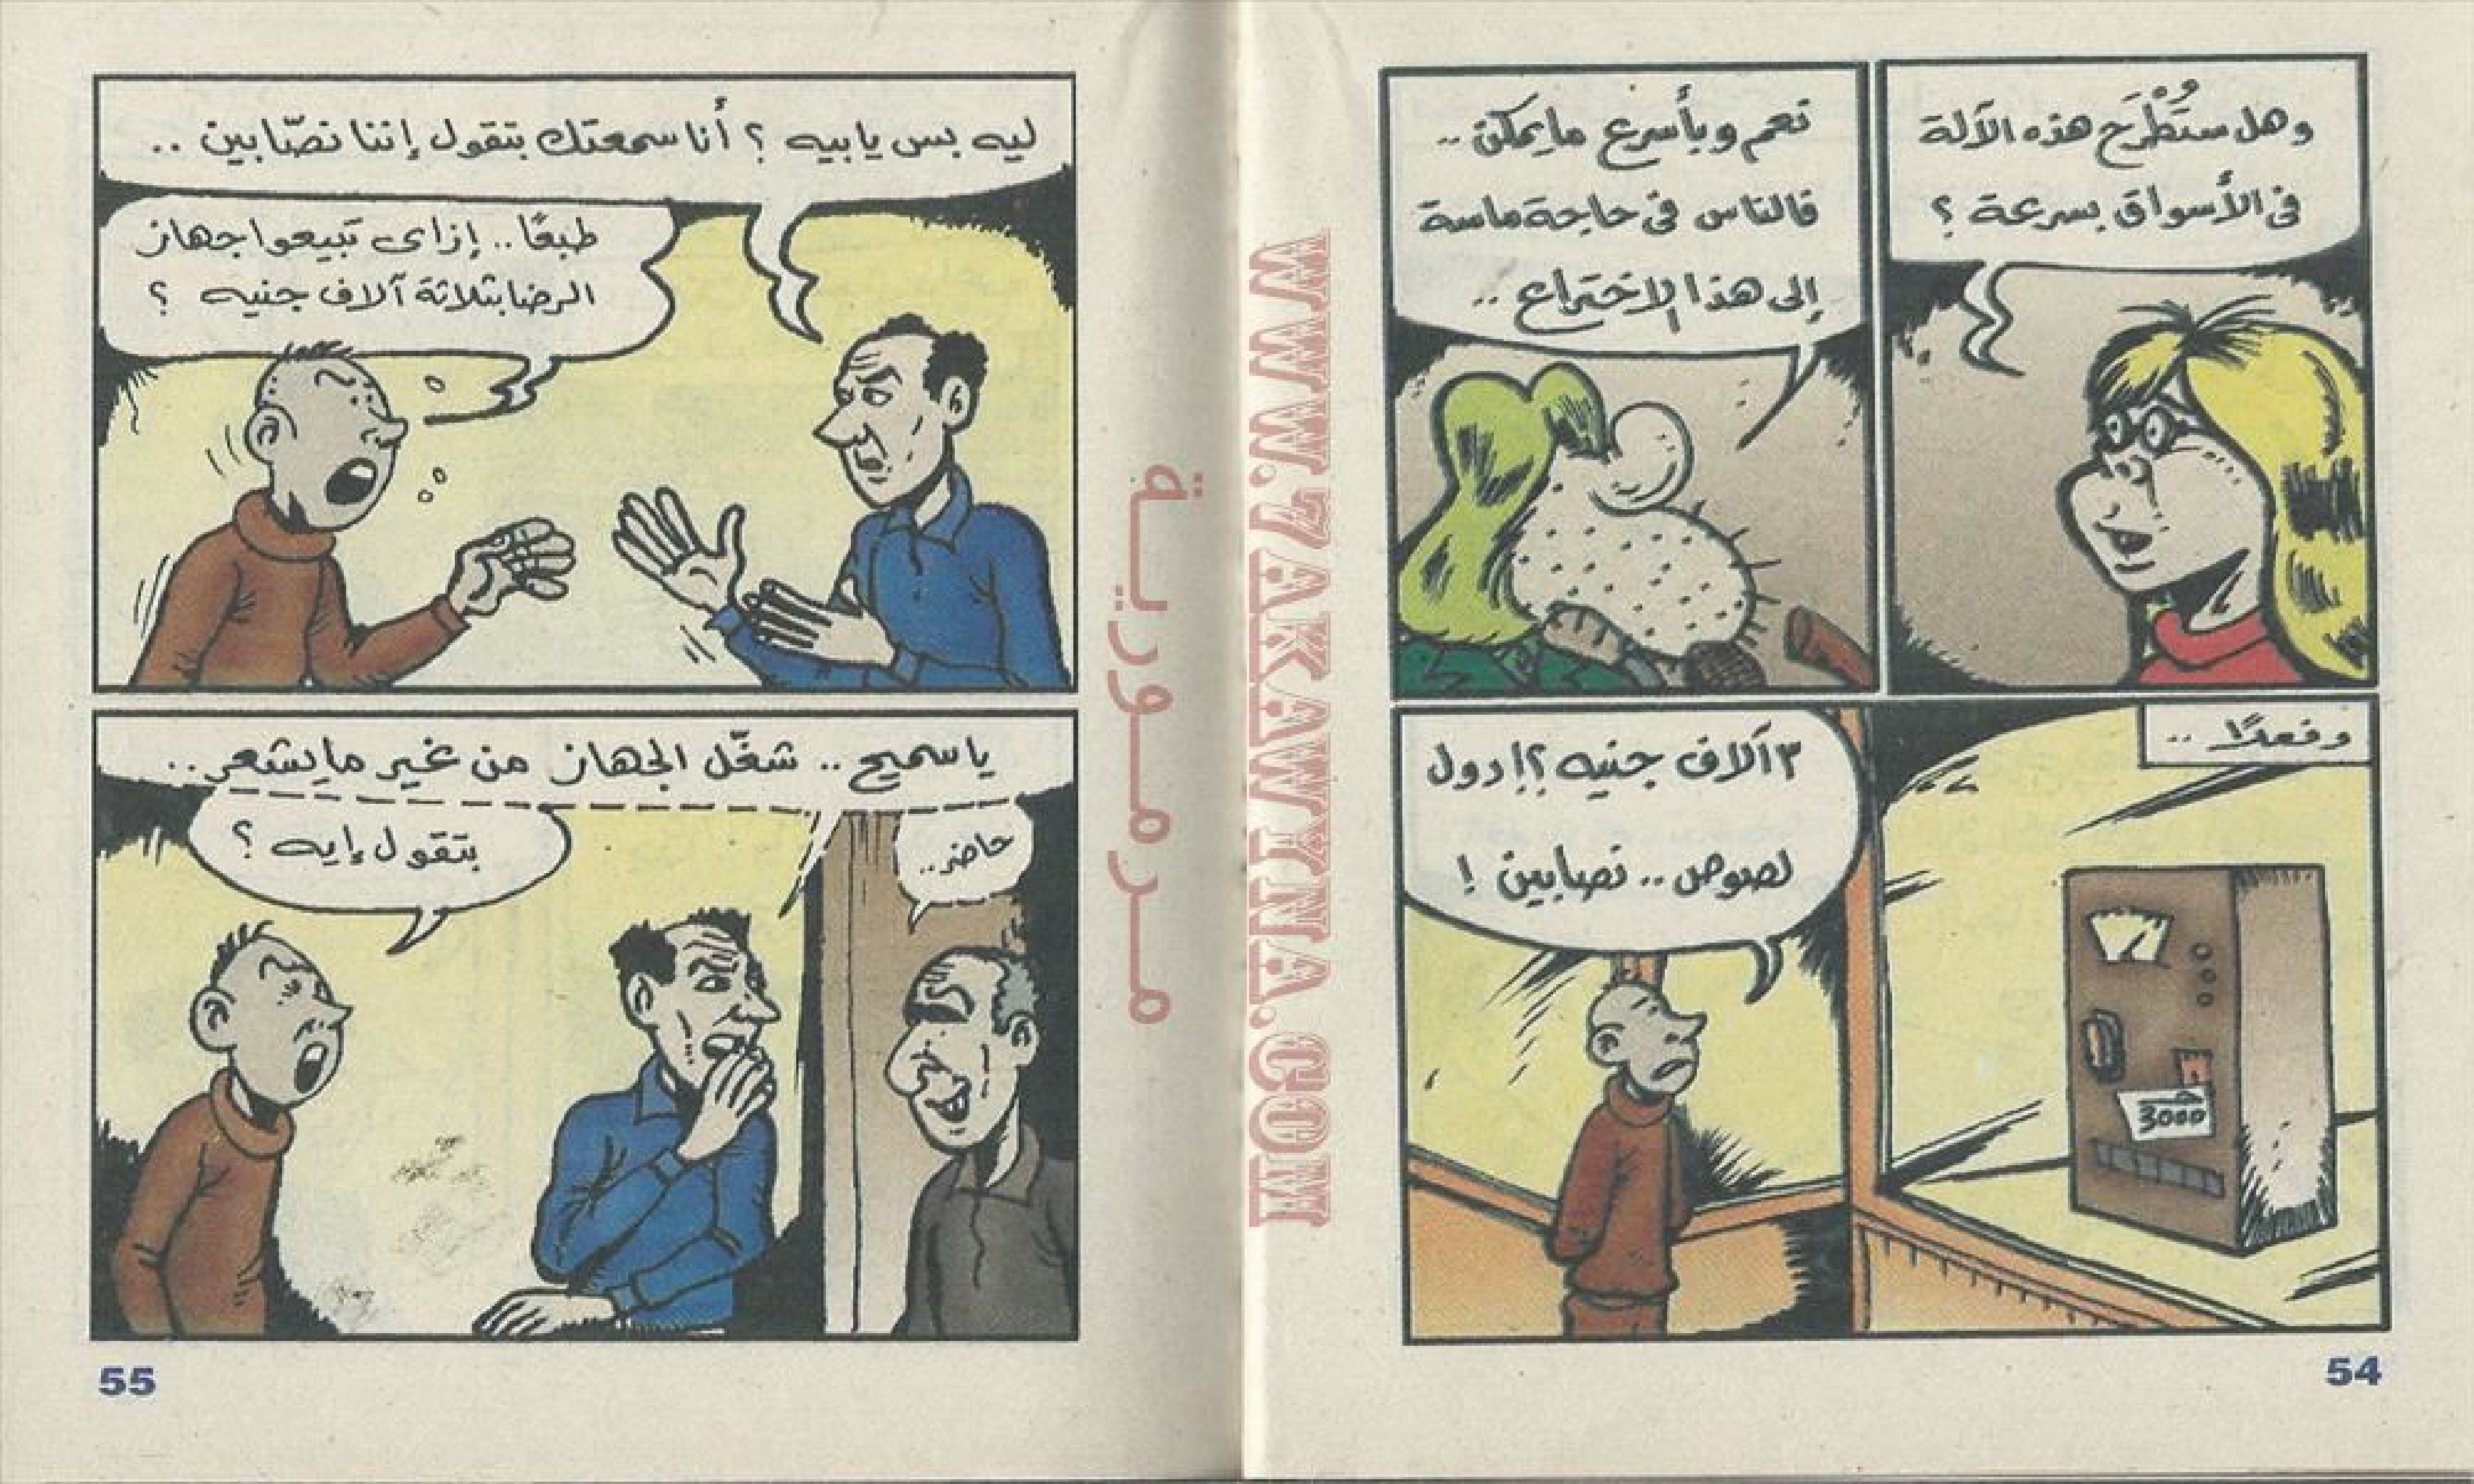 وهل ستُطْرَح هذه الآلة
فى الأسواق بسرعة ؟
نعم وبأسرع ما يمكن ..
فالناس فى حاجة ماسة
إلى هذا الاختراع ..
وفعلًا ..
٣ آلاف جنيه ؟! دول
لصوص .. نصابين !
3000
54
ليه بس يا بيه ؟ أنا سمعتك بتقول إننا نصّابين ..
طبعًا .. إزاى تبيعوا جهاز
الرضا بثلاثة آلاف جنيه ؟
يا سميح .. شغّل الجهاز من غير ما يشعر ..
حاضر ..
بتقول إيه ؟
55
مرمورية
WWW.7AKAWYNA.COM